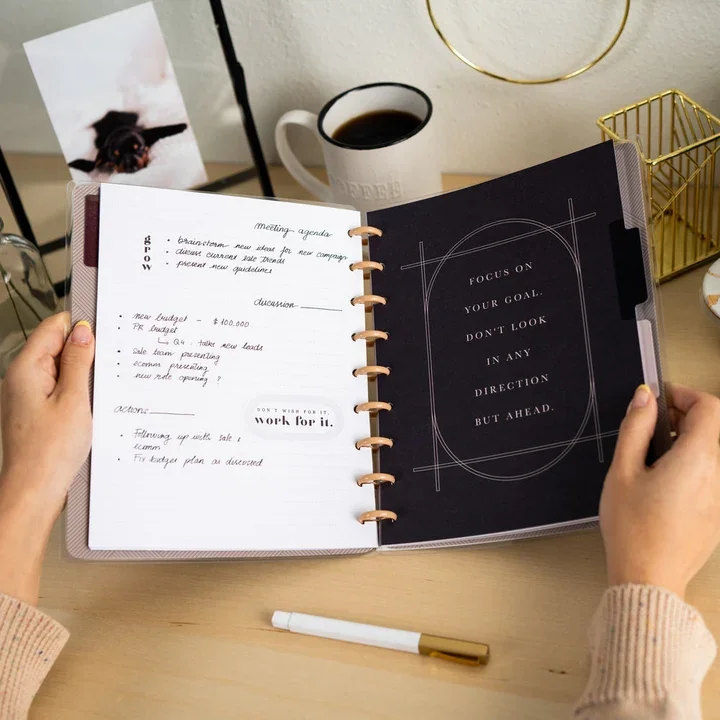 COFFEE
meeting agenda
grow
• brainstorm new ideas for new campaign
• discuss current sale trends
• present new guidelines
discussion
• new budget - $100,000
• PR budget
Q4: talks new leads
• sale team presenting
• ecomm presenting
• new role opening ?
DON'T WISH FOR IT.
work for it.
actions
• Following up with sale &
ecomm
• Fix budget plan as discussed
FOCUS ON
YOUR GOAL.
DON'T LOOK
IN ANY
DIRECTION
BUT AHEAD.